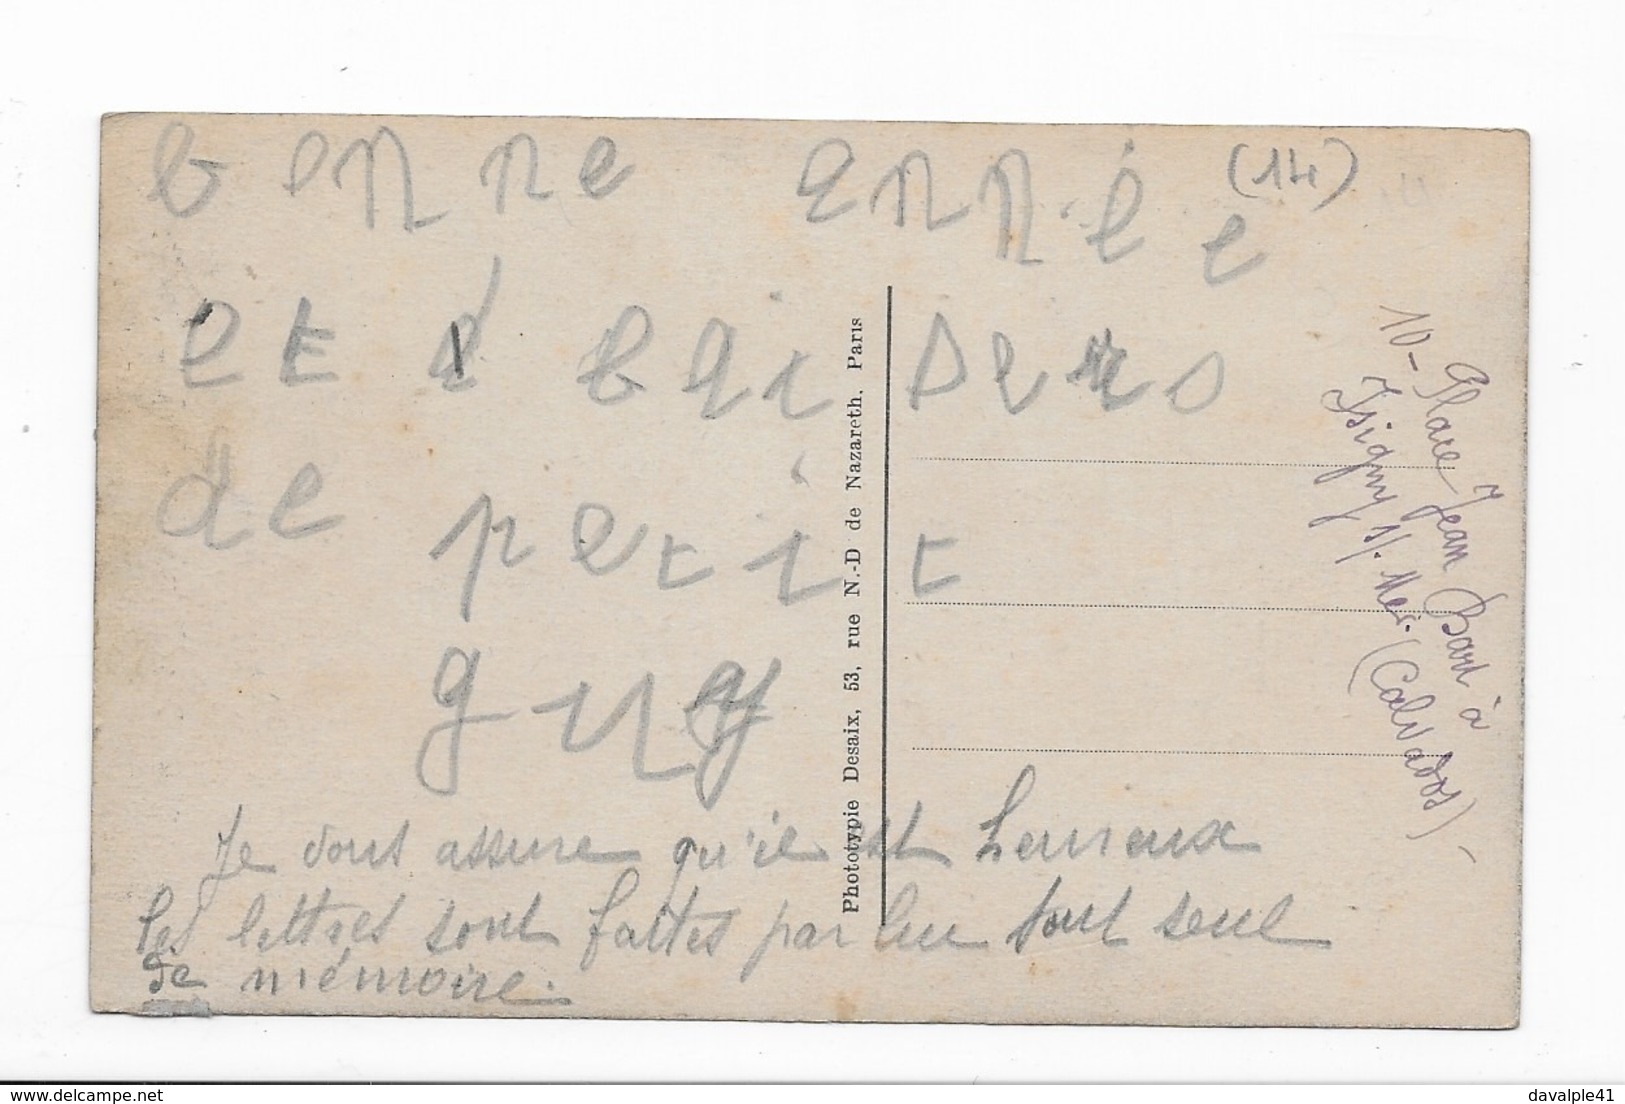 bonne année (14)
et d baisers
de petit
guy
Je vous assure qu'il est heureux
les lettres sont faites par lui tout seul
de mémoire.
Phototypie Desaix, 53, rue N.-D de Nazareth. Paris
10 - Place Jean Bart à
Isigny s/. Mer. (Calvados) -
delcampe.net
davalple41